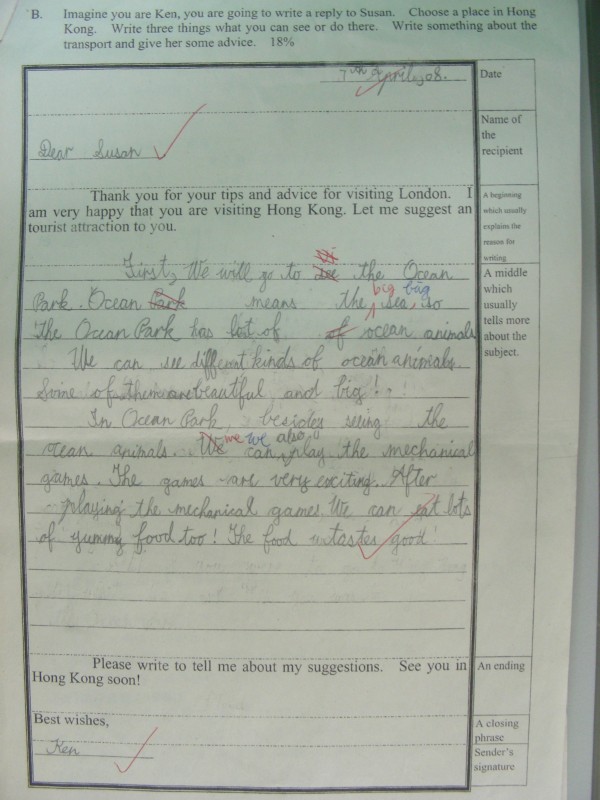 B. Imagine you are Ken, you are going to write a reply to Susan. Choose a place in Hong
Kong. Write three things what you can see or do there. Write something about the
transport and give her some advice. 18%
7th April, 08.
Date
Name of
the
recipient
Dear Susan
Thank you for your tips and advice for visiting London. I
am very happy that you are visiting Hong Kong. Let me suggest an
tourist attraction to you.
A beginning
which usually
explains the
reason for
writing
First, We will go to the Ocean
big big
Park. Ocean Park means the sea, so
the Ocean Park has lost of of ocean animals
We can see different kinds of ocean animals.
Some of them are beautful and big!
A middle
which
usually
tells more
about the
subject.
In Ocean Park, besides seeing the
we we also
ocean animals. We can play the mechanical
games. The games are very exciting. After
playing the mechanical games. We can eat lots
of yummy food too! The food tastes good!
Please write to tell me about my suggestions. See you in
Hong Kong soon!
An ending
Best wishes,
A closing
phrase
Ken
Sender's
signature